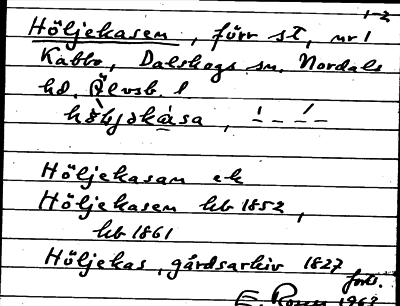 1-2
Höljekasen, förr st, nr 1
Kabbo, Dalskogs sn. Nordals
hd. Älvsb. l
höljekåsa,
Höljekasan ek
Höljekasen hb 1852,
hb 1861
Höljekas, gårdsarkiv 1827
forts.
E. Rosen 1963